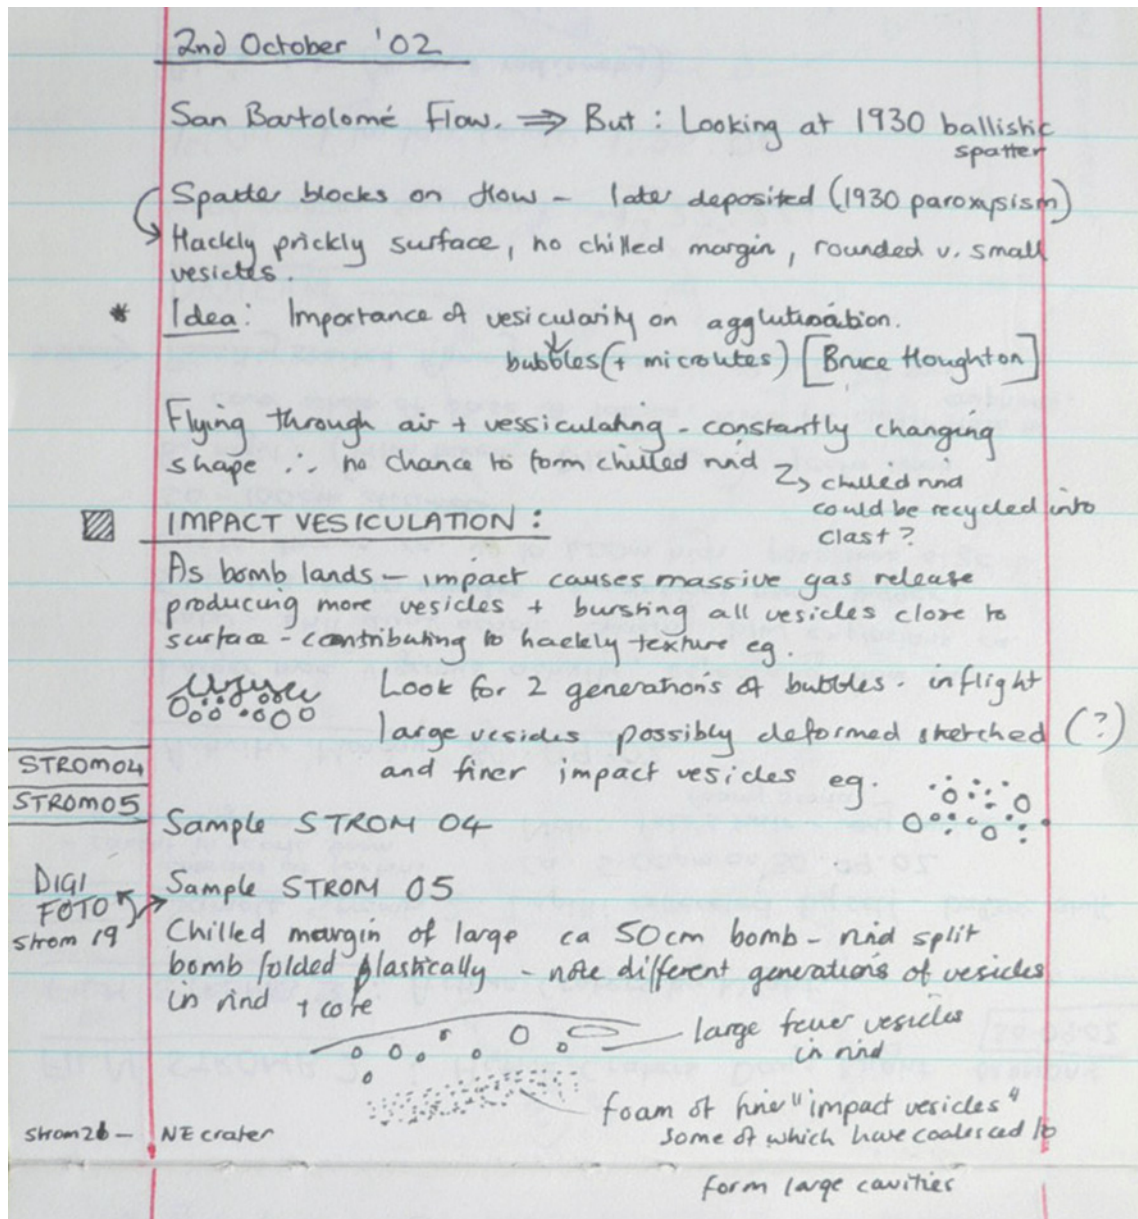 2nd October '02
San Bartolomé Flow. ⇒ But : Looking at 1930 ballistic
spatter
Spatter blocks on flow - later deposited (1930 paroxysism)
Hackly prickly surface, no chilled margin, rounded v. small
vesicles.
* Idea: Importance of vesicularity on agglutination.
bubbles (+ microlites) [Bruce Houghton]
Flying through air + vessiculating - constantly changing
shape ∴ no chance to form chilled rind
↳ chilled rind
could be recycled into
clast ?
IMPACT VESICULATION :
As bomb lands - impact causes massive gas release
producing more vesicles + bursting all vesicles close to
surface - contributing to hackly texture eg.
Look for 2 generations of bubbles - inflight
large vesicles possibly deformed stretched (?)
and finer impact vesicles eg.
STROM04
STROM05
Sample STROM 04
Sample STROM 05
DIGI
FOTO
strom 19
Chilled margin of large ca 50cm bomb - rind split
bomb folded plastically - note different generations of vesicles
in rind + core
large fewer vesicles
in rind
foam of fine "impact vesicles"
some of which have coalesced to
form large cavities
strom26 - NE crater